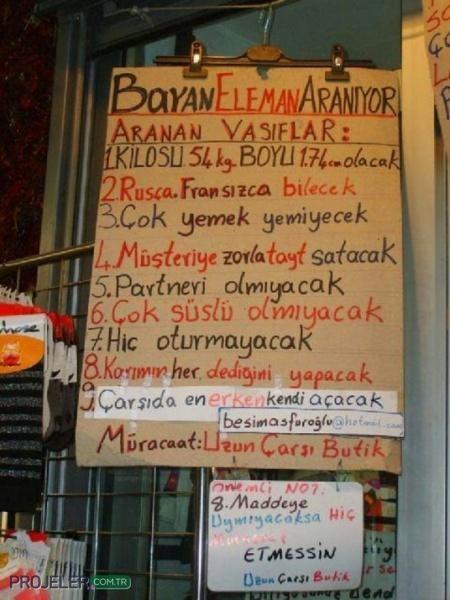 BAYAN ELEMAN ARANIYOR
ARANAN VASIFLAR:
1.KİLOSU 54 kg. BOYU 1.74 cm olacak
2.Rusça.Fransızca bilecek
3.Çok yemek yemiyecek
4.Müşteriye zorla tayt satacak
5.Partneri olmıyacak
6.Çok süslü olmıyacak
7.Hiç oturmayacak
8.Karımın her, dediğini yapacak
9.Çarşıda en erken kendi açacak
besimasfuroğlu@hotmail.com
Müracaat:Uzun Çarşı Butik
Önemli NOT.
8.Maddeye
Uymıyacaksa HİÇ
Müracaat
ETMESSİN
Uzun Çarşı Butik
PROJELER.COM.TR